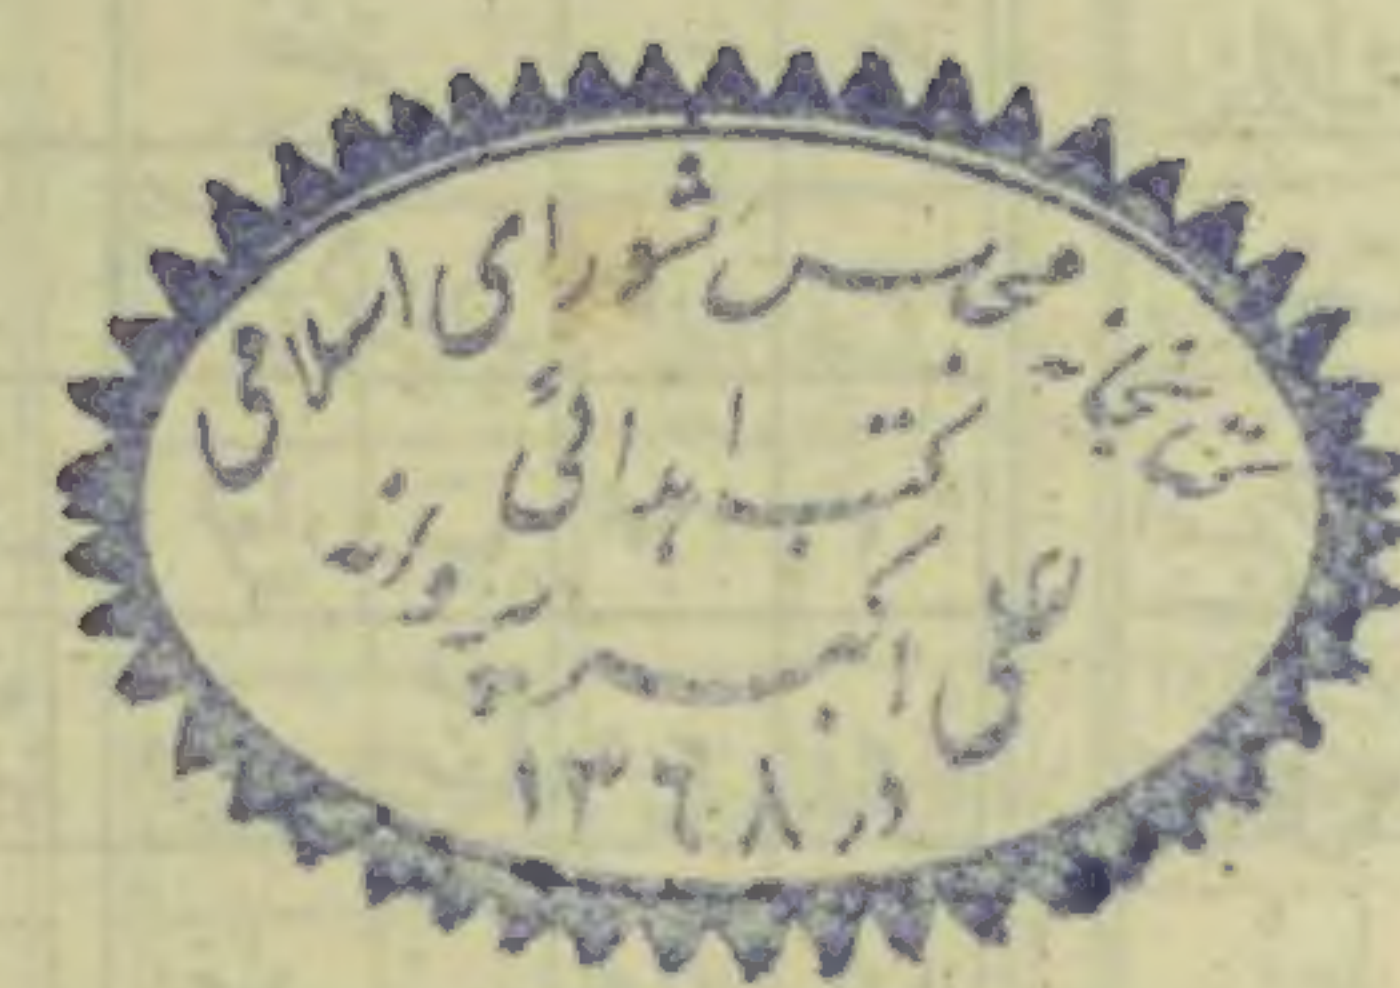 کتابخانه مجلس شورای اسلامی
کتب اهدائی
علی اکبر
در ۱۳۶۸